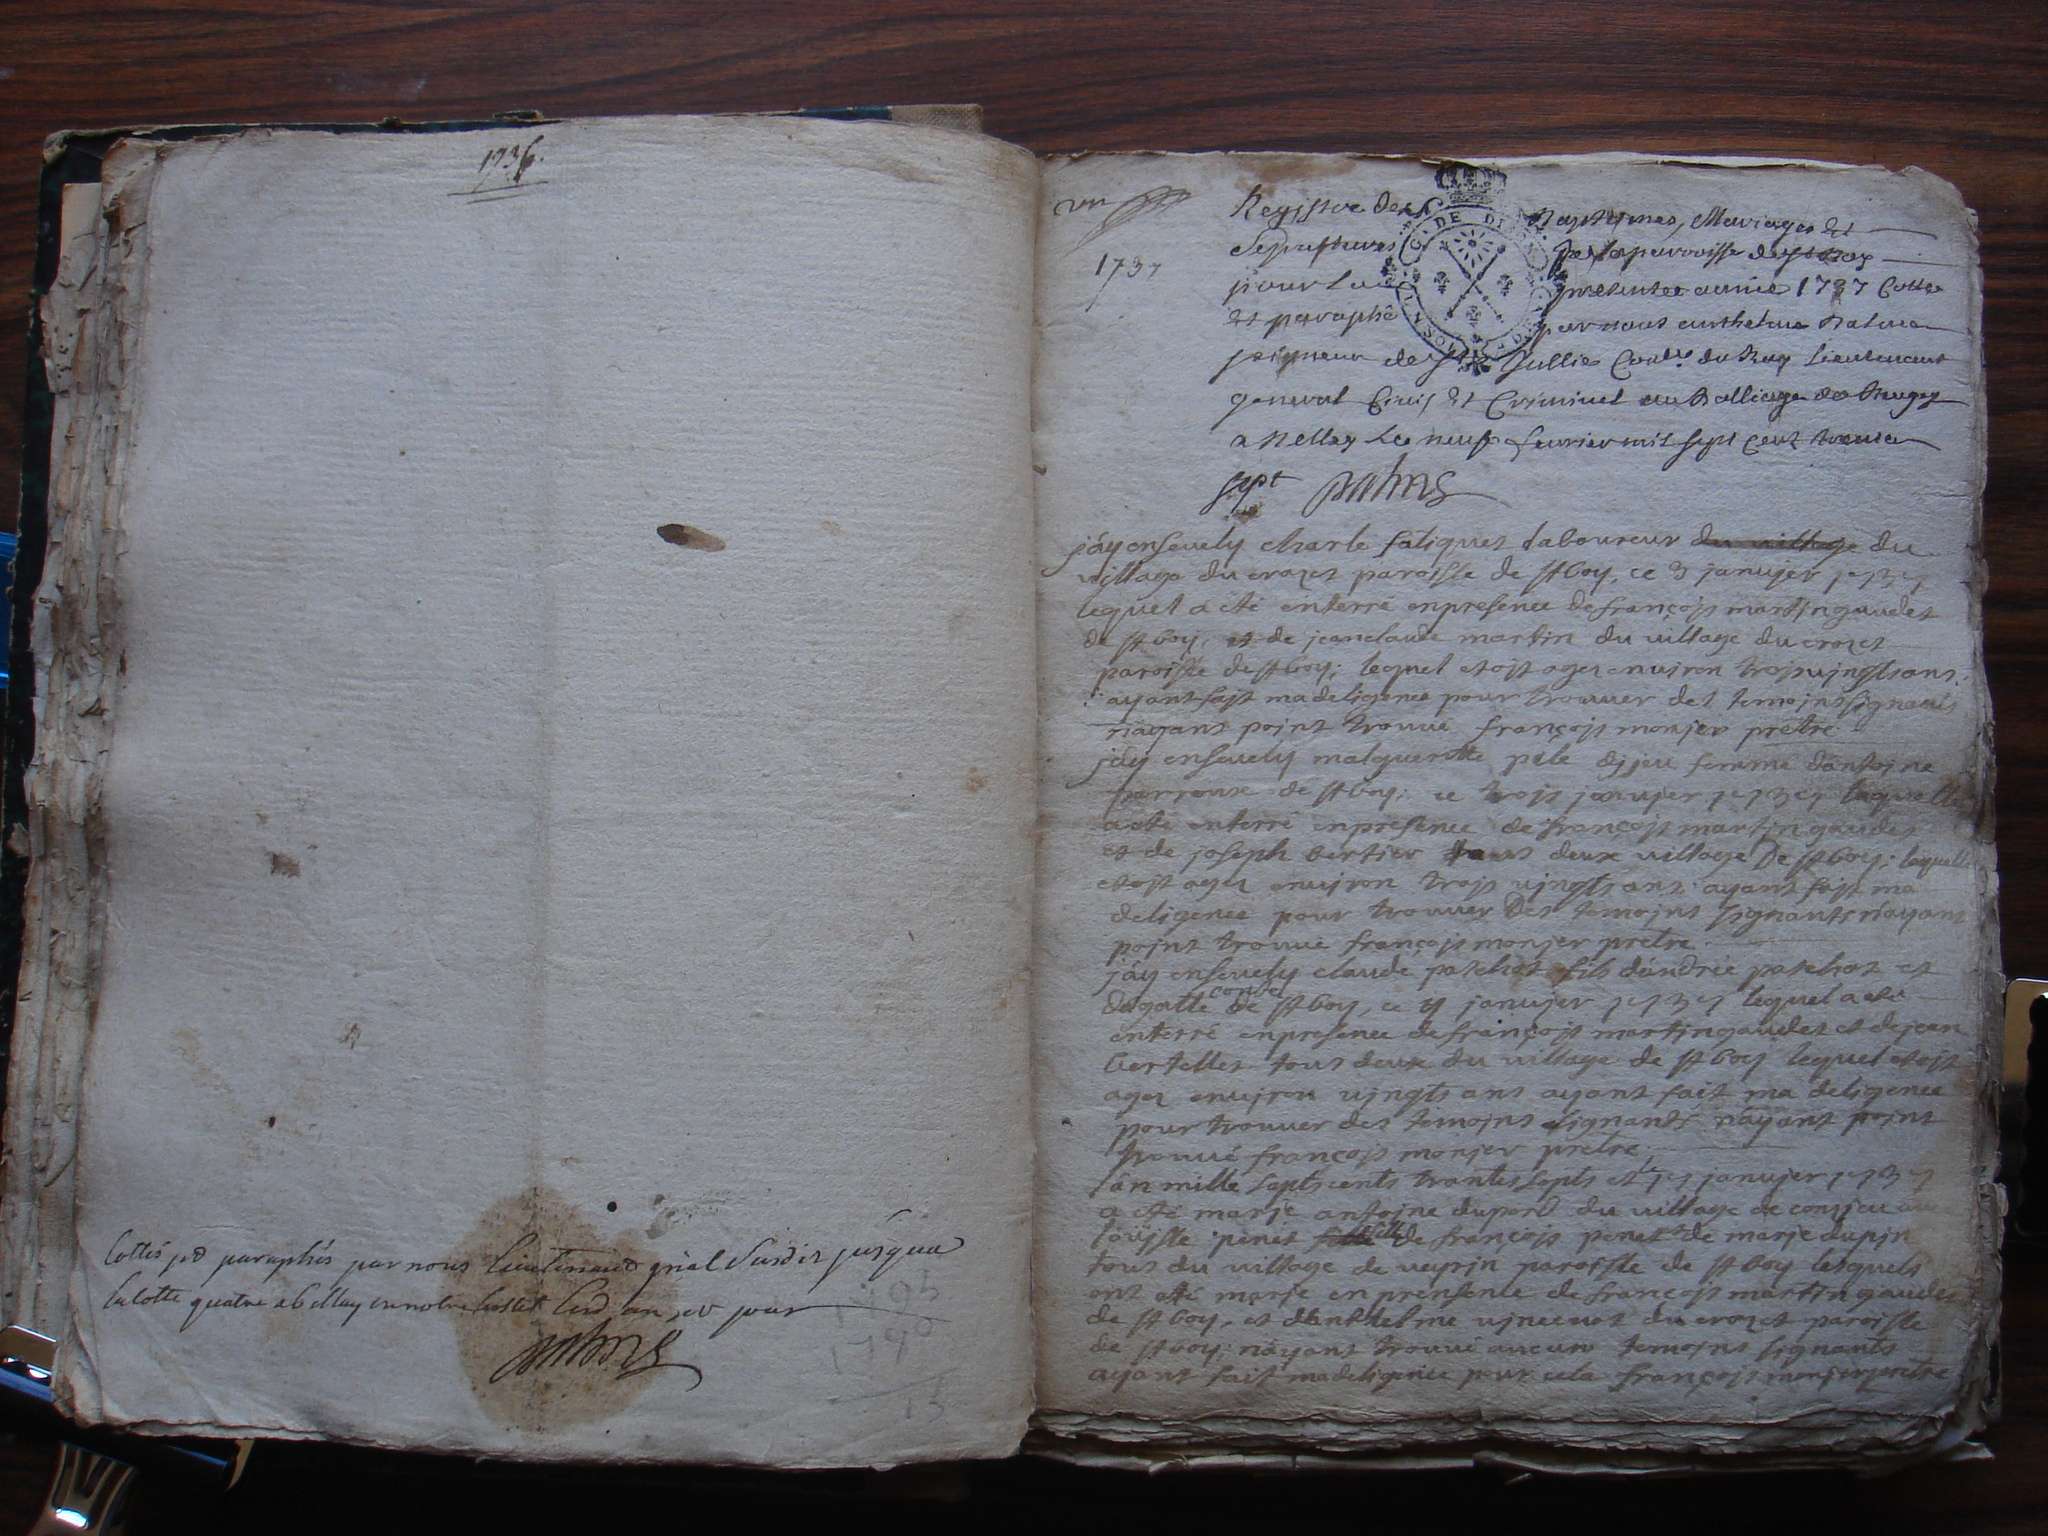 1736.
Cottés et paraphés par nous Lieutenand gńal susdit jusqua
la cotte quatre a bellay en notre hostel lesd. an et jour
195
1790
15
un
1737
Registre des Baptesmes, Mariages et
Sepultures de la parroisse de St Boy
pour la presente année 1737 Cotté
et paraphé par nous anthelme Balme
seigneur de Ste Jullie Conler. du Roy Lieutenant
general Civil et Criminel au Balliage de Bugey
a Belley Le neuf feurier mil sept cent trente
sept Balme
C. DE DIJON
jáy enseuely charle fatiques laboureur du village du
village du crozet paroisse de st boy, ce 3 janujer 1737
lequel a été enterré enpresence de françojs martin gaudet
de st boy, et de jeanclaude martin du village du crozet
paroisse de st boy; lequel etoit agez enuiron trojs vjngts ans,
ayant fajt ma deligence pour trouuer des temojns signants
nayant pojnt trouué françojs monjer prêtre
jáy enseuely malgueritte djjeu femme dántojne
de st boy; ce trojs janujer 1737 laquelle
a été enterré enpresence de françojs martjn gaudet
et de joseph bertier tous deux village De st boy; laquelle
etojt agez enuiron trojs vjngts ans, ayant fajt ma
deligence pour trouuer Des temojns sjgnants náyant
pojnt trouué françojs monjer prêtre
jáy enseuely claude patchot fils dándrée patchot et
dagatte de st boy, ce janujer 1737 lequel a eté
enterré enpresence de françojs martjn gaudet et de jean
bertelles tous deux du village de st boy lequel etojt
agez enujron vjngts ans ayant fait ma deligence
pour trouuer des temojns signants náyant pojnt
trouué françojs monjer pretre,
lán mille septs cents trantes septs et le janujer 1737
a été marje antojne duport du village de conzieu au
louïsse penet fille de françojs penet de marje dupjn
tous du village de veyrjn paroisse de st boy lesquels
ont été marje en prensence de françojs martjn gaudet
de st boy, et dánthelme vjncent du crozet paroisse
de st boy; náyant trouué aucuns temojns signants
ayant fait ma deligence pour cela françojs monjer prêtre